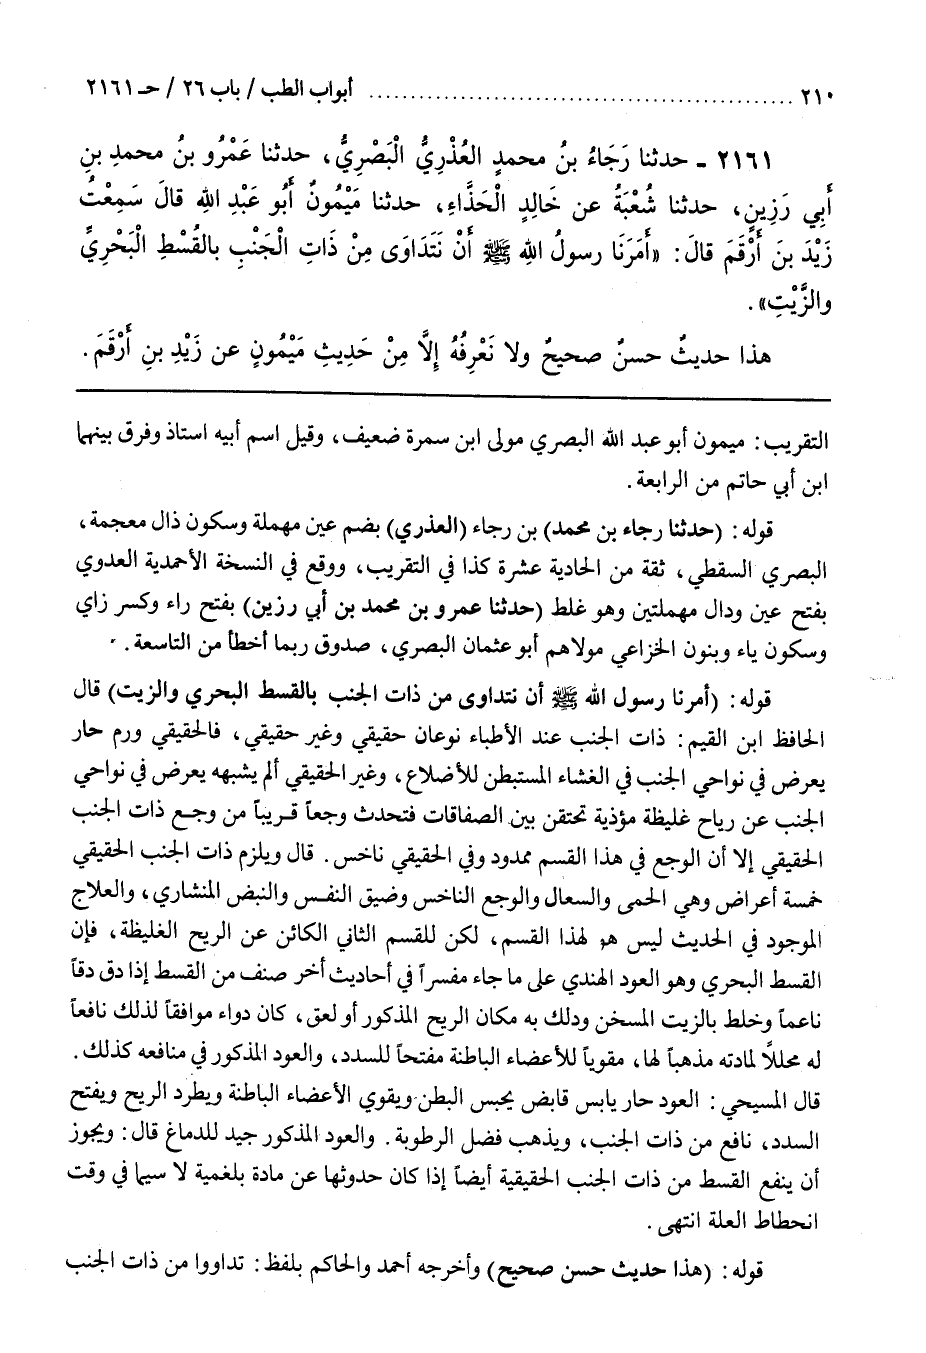 ٢١٠ ........................................ أبواب الطب / باب ٢٦ / حـ ٢١٦١
٢١٦١ ـ حدثنا رَجَاءُ بنُ محمدٍ العُذْرِيُّ الْبَصْرِيُّ، حدثنا عَمْرُو بنُ محمدِ بنِ
أَبِي رَزِينٍ، حدثنا شُعْبَةُ عن خَالِدٍ الْحَذَّاءِ، حدثنا مَيْمُونٌ أَبُو عَبْدِ اللهِ قالَ سَمِعْتُ
زَيْدَ بنَ أَرْقَمَ قالَ: «أَمَرَنَا رسولُ اللهِ ﷺ أَنْ نَتَدَاوَى مِنْ ذَاتِ الْجَنْبِ بالقُسْطِ الْبَحْرِيِّ
والزَّيْتِ».
هذا حديثٌ حسنٌ صحيحٌ ولا نَعْرِفُهُ إِلَّا مِنْ حَدِيثِ مَيْمُونٍ عن زَيْدِ بنِ أَرْقَمَ.
التقريب: ميمون أبو عبد الله البصري مولى ابن سمرة ضعيف، وقيل اسم أبيه استاذ وفرق بينهما
ابن أبي حاتم من الرابعة.
قوله: (حدثنا رجاء بن محمد) بن رجاء (العذري) بضم عين مهملة وسكون ذال معجمة،
البصري السقطي، ثقة من الحادية عشرة كذا في التقريب، ووقع في النسخة الأحمدية العدوي
بفتح عين ودال مهملتين وهو غلط (حدثنا عمرو بن محمد بن أبي رزين) بفتح راء وكسر زاي
وسكون ياء وبنون الخزاعي مولاهم أبو عثمان البصري، صدوق ربما أخطأ من التاسعة.
قوله: (أمرنا رسول الله ﷺ أن نتداوى من ذات الجنب بالقسط البحري والزيت) قال
الحافظ ابن القيم: ذات الجنب عند الأطباء نوعان حقيقي وغير حقيقي، فالحقيقي ورم حار
يعرض في نواحي الجنب في الغشاء المستبطن للأضلاع، وغير الحقيقي ألم يشبهه يعرض في نواحي
الجنب عن رياح غليظة مؤذية تحتقن بين الصفاقات فتحدث وجعاً قريباً من وجع ذات الجنب
الحقيقي إلا أن الوجع في هذا القسم ممدود وفي الحقيقي ناخس. قال ويلزم ذات الجنب الحقيقي
خمسة أعراض وهي الحمى والسعال والوجع الناخس وضيق النفس والنبض المنشاري، والعلاج
الموجود في الحديث ليس هو لهذا القسم، لكن للقسم الثاني الكائن عن الريح الغليظة، فإن
القسط البحري وهو العود الهندي على ما جاء مفسراً في أحاديث أخر صنف من القسط إذا دق دقاً
ناعماً وخلط بالزيت المسخن ودلك به مكان الريح المذكور أو لعق، كان دواء موافقاً لذلك نافعاً
له محللًا لمادته مذهباً لها، مقوياً للأعضاء الباطنة مفتحاً للسدد، والعود المذكور في منافعه كذلك.
قال المسيحي: العود حار يابس قابض يحبس البطن ويقوي الأعضاء الباطنة ويطرد الريح ويفتح
السدد، نافع من ذات الجنب، ويذهب فضل الرطوبة. والعود المذكور جيد للدماغ قال: ويجوز
أن ينفع القسط من ذات الجنب الحقيقية أيضاً إذا كان حدوثها عن مادة بلغمية لا سيما في وقت
انحطاط العلة انتهى.
قوله: (هذا حديث حسن صحيح) وأخرجه أحمد والحاكم بلفظ: تداووا من ذات الجنب